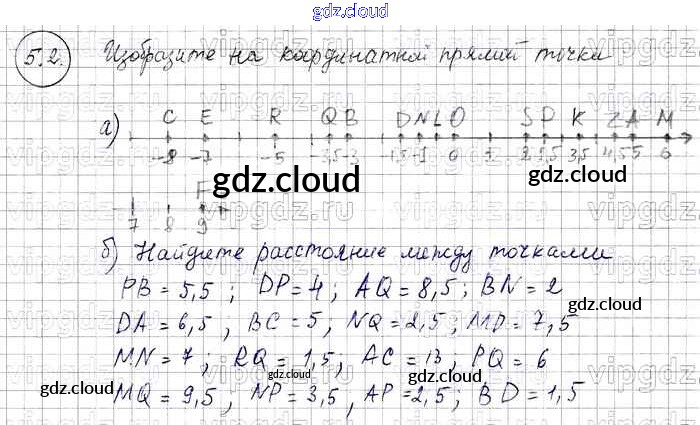 gdz.cloud
5.2. Изобразите на координатной прямой точки
а) C E R Q B D N L O S P K Z A M
-8 -7 -5 -3,5 -3 -1,5 -1 0 1 2 2,5 3,5 4,5 5 6
F
gdz.cloud
7 8 9
б) Найдите расстояние между точками
PB = 5,5 ; DP = 4 ; AQ = 8,5 ; BN = 2
gdz.cloud gdz.cloud
DA = 6,5 , BC = 5 ; NQ = 2,5 ; MD = 7,5
MN = 7 ; RQ = 1,5 , AC = 13 , PQ = 6
gdz.cloud gdz.cloud
MQ = 9,5 , NP = 3,5 , AP = 2,5 ; BD = 1,5
gdz.cloud